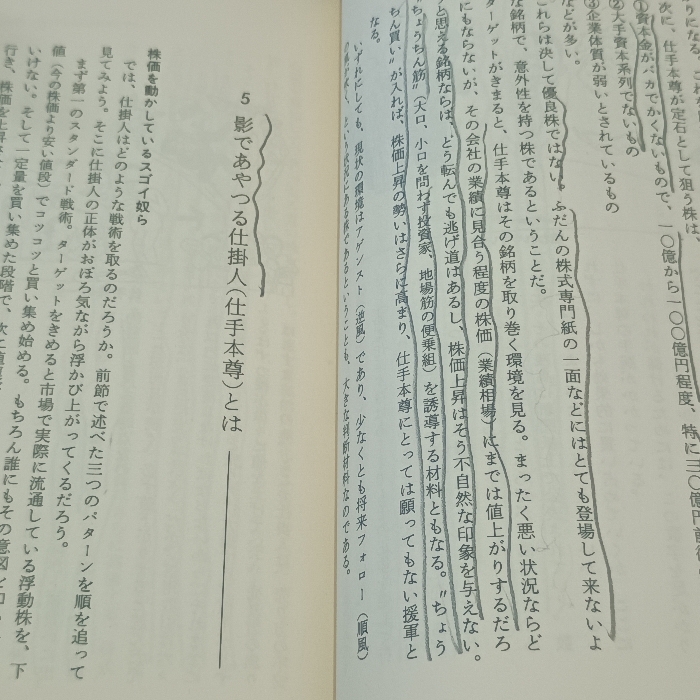 次に、仕手本尊が定石として狙う株は、
①資本金がバカでかくないもので、一〇億から一〇〇億円程度、特に二〇億円前後
②大手資本系列でないもの
③企業体質が弱いとされているもの
などが多い。
これらは決して優良株ではない。ふだんの株式専門紙の一面などにはとても登場して来ないよ
な銘柄で、意外性を持つ株であるということだ。
ターゲットがきまると、仕手本尊はその銘柄を取り巻く環境を見る。まったく悪い状況ならど
にもならないが、その会社の業績に見合う程度の株価（業績相場）にまでは値上がりするだろ
と思える銘柄ならば、どう転んでも逃げ道はあるし、株価上昇はそう不自然な印象を与えない。
"ちょうちん筋"（大口、小口を問わず投資家、地場筋の便乗組）を誘導する材料ともなる。"ちょう
ちん買い"が入れば、株価上昇の勢いはさらに高まり、仕手本尊にとっては願ってもない援軍と
なる。
いずれにしても、現状の環境はアゲンスト（逆風）であり、少なくとも将来フォロー（順風）
という状況にある株であるということも、大きな判断材料なのである。
5 影であやつる仕掛人（仕手本尊）とは
株価を動かしているスゴイ奴ら
では、仕掛人はどのような戦術を取るのだろうか。前節で述べた三つのパターンを順を追って
見てみよう。そこに仕掛人の正体がおぼろ気ながら浮かび上がってくるだろう。
まず第一のスタンダード戦術。ターゲットをきめると市場で実際に流通している浮動株を、下
値（今の株価より安い値段）でコツコツと買い集め始める。もちろん誰にもその意図を
いけない。そして一定量を買い集めた段階で、次に
行き、株価を上昇